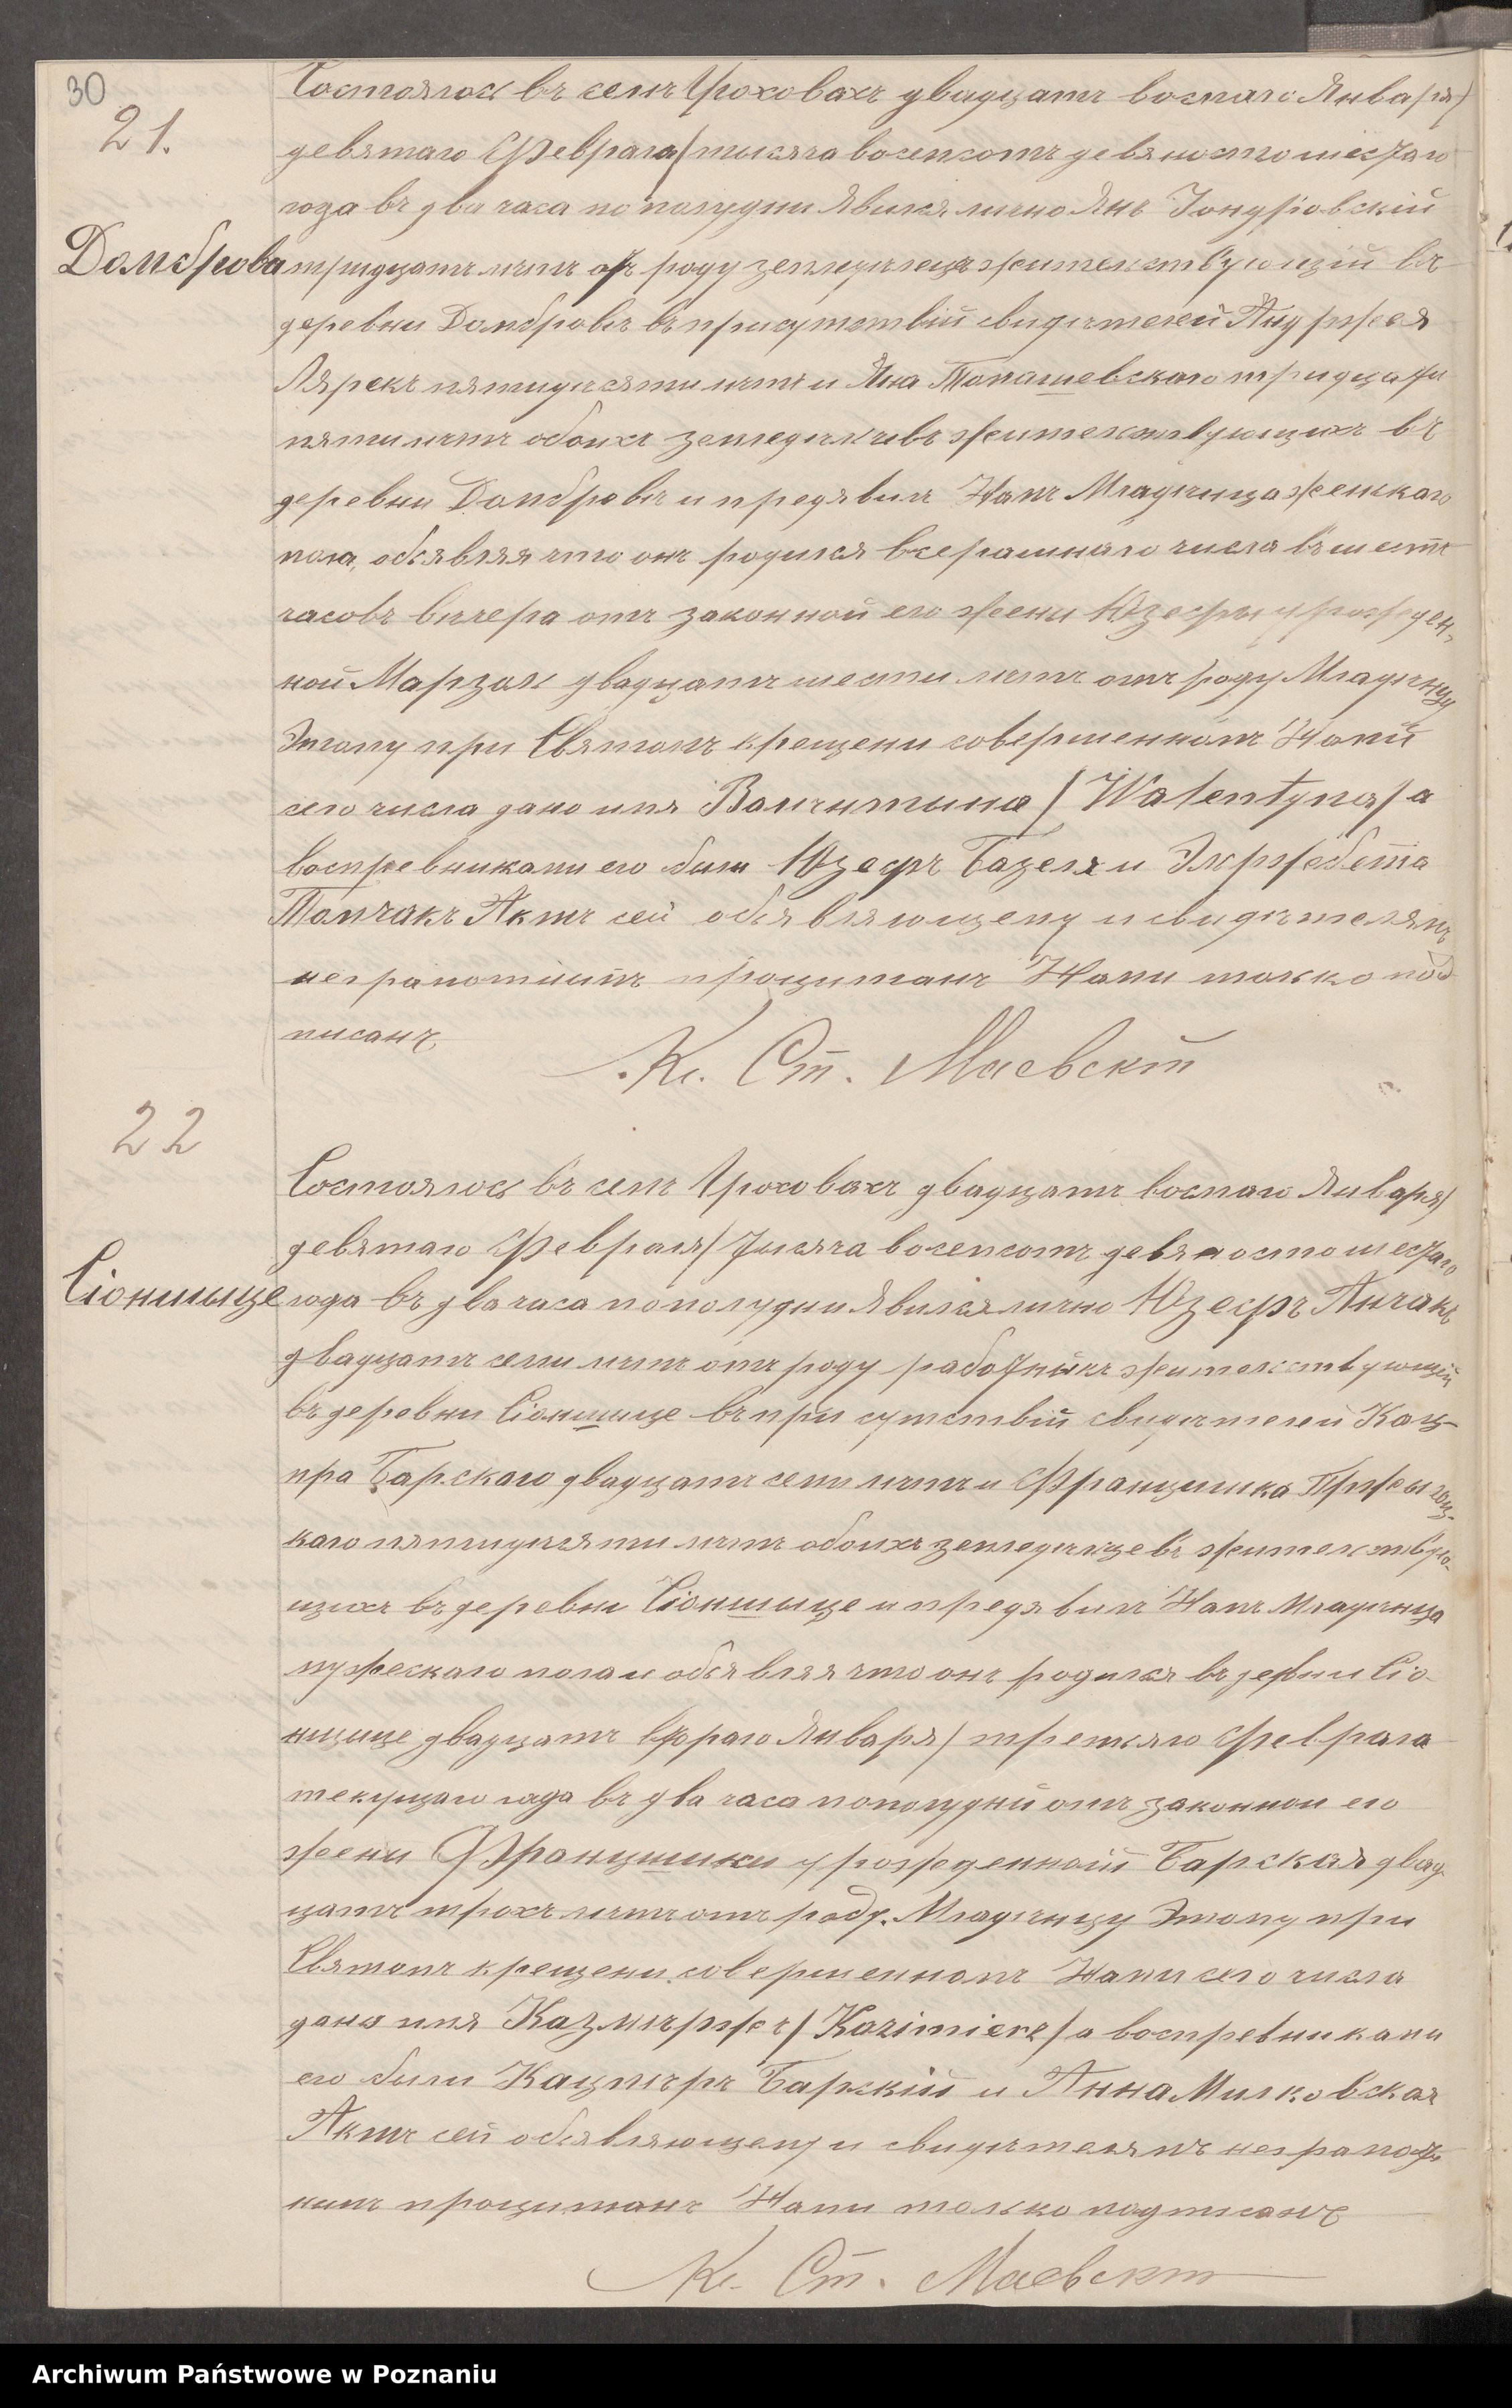 30
21.
Состоялось въ селѣ Гроховахъ двадцать восмаго Января/
девятаго Февраля/ тысяча восемсотъ девяносто шестаго
Домброва
года въ два часа по полудни Явился лично Янъ
тридцать лѣтъ отъ роду земледѣлецъ жительствующій въ
деревни Домбровѣ въ присутствій свидѣтелей Андржея
пятидесяти лѣтъ и Яна Томашевскаго тридцати
пяти лѣтъ обоихъ земледѣлцевъ жительствующихъ въ
деревни Домбровѣ и предявилъ Намъ Младенца женскаго
пола, объявляя что онъ родился вчерашняго числа въ шесть
часовъ вечера отъ законной его жени Юзефы урожден-
ной Марзак двадцать шести лѣтъ отъ роду Младенцу
Этому при Святомъ крещени совершенномъ Нами
сего числа дано имя Валентина / Walentyna/ а
воспревниками его были Юзефъ Базеля и Элржбета
Томчакъ Актъ сей объявляющему и свидѣтелямъ
неграмотнимъ прочитанъ Нами только под
писанъ
Кс. Ст. Маевскій
22
Состоялось въ селѣ Гроховахъ двадцать восмаго Января/
девятаго Февраля/ тысяча восемсотъ девяносто шестаго
Сіоншыце
года въ два часа по полудни Явился лично Юзефъ Анчакъ
двадцать семи лѣтъ отъ роду работникъ жительствующій
въ деревни Сіоншыце въ присутствій свидѣтелей Кац-
пра Барскаго двадцать семи лѣтъ и Францишка
каго пятидесяти лѣтъ обоихъ земледѣлцевъ жительствую-
щихъ въ деревни Сіоншыце и предявилъ Намъ Младенца
мужескаго пола и объявляя что онъ родился въ деревни Сіо-
ншыце двадцать втораго Января/ третяго Февраля
текущаго года въ два часа по полудни отъ законной его
жени Францишки урожденной Барская двад-
цать трохъ лѣтъ отъ роду. Младенцу Этому при
Святомъ крещени совершенномъ Нами сего числа
дано имя Казмѣржъ/ Kazimierz/ а воспревниками
его были Кацпѣръ Барскій и Анна Милковская
Актъ сей объявляющему и свидѣтелямъ неграмот-
нимъ прочитанъ Нами только подписанъ
Кс. Ст. Маевскій
Archiwum Państwowe w Poznaniu